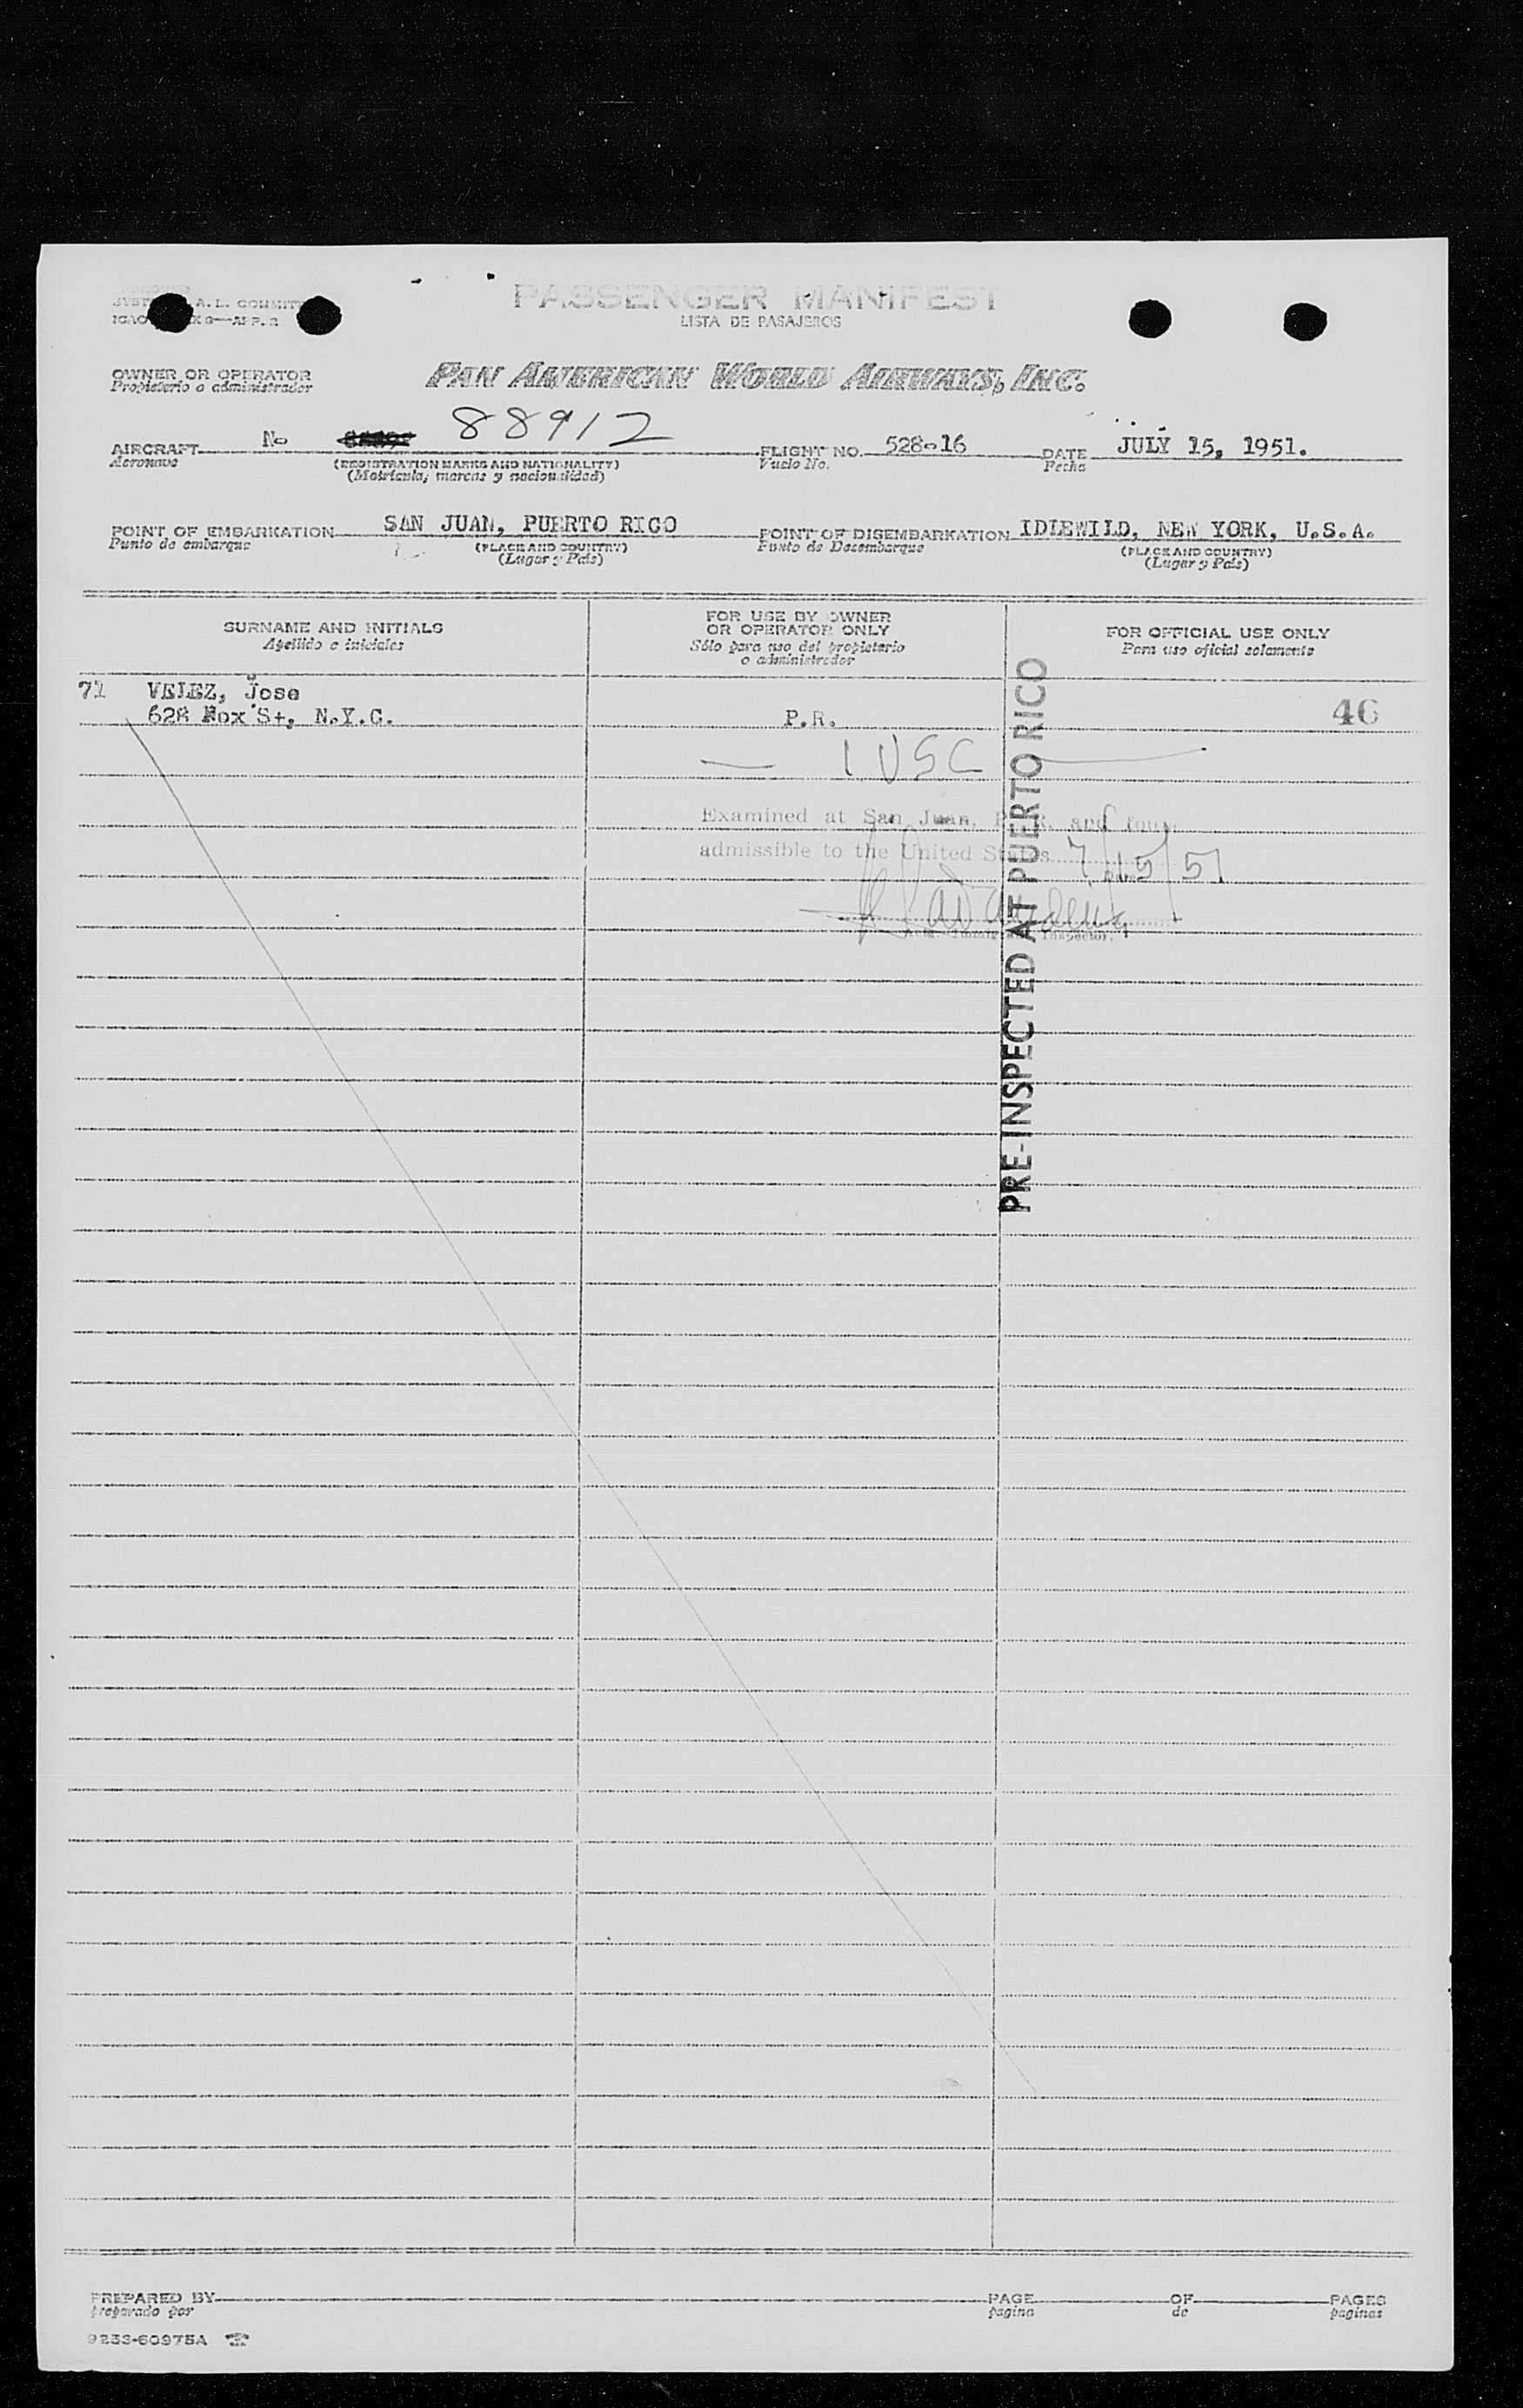 PASSENGER MANIFEST
LISTA DE PASAJEROS
A. L. COMMITT
OWNER OR OPERATOR
Propietario o administrador
PAN AMERICAN WORLD AIRWAYS, INC.
AIRCRAFT No 88912 FLIGHT NO. 528-16 DATE JULY 15, 1951.
Aeronave (REGISTRATION MARKS AND NATIONALITY) Vuelo No. Fecha
(Matricula, marcas y nacionalidad)
POINT OF EMBARKATION SAN JUAN, PUERTO RICO POINT OF DISEMBARKATION IDLEWILD, NEW YORK, U.S.A.
Punto de embarque (PLACE AND COUNTRY) Punto de Desembarque (PLACE AND COUNTRY)
(Lugar y País) (Lugar y País)
SURNAME AND INITIALS
Apellido e iniciales
FOR USE BY OWNER
OR OPERATOR ONLY
Sólo para uso del propietario
o administrador
FOR OFFICIAL USE ONLY
Para uso oficial solamente
71 VELEZ, Jose
628 Fox St, N.Y.C. P.R. 46
1 USC
Examined at San Juan, P. R. and foun
admissible to the United States 7/15/51
Inspector.
PRE-INSPECTED AT PUERTO RICO
PREPARED BY PAGE OF PAGES
preparado por pagina de paginas
9233-60975A